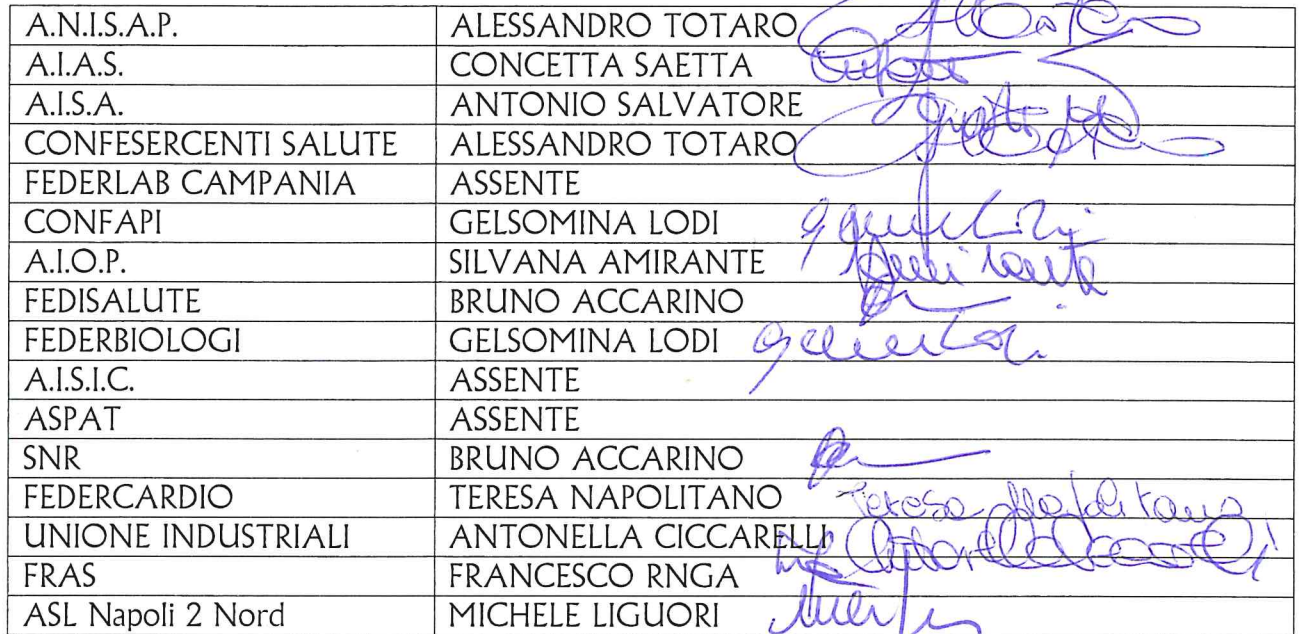 A.N.I.S.A.P. ALESSANDRO TOTARO
A.I.A.S. CONCETTA SAETTA
A.I.S.A. ANTONIO SALVATORE
CONFESERCENTI SALUTE ALESSANDRO TOTARO
FEDERLAB CAMPANIA ASSENTE
CONFAPI GELSOMINA LODI
A.I.O.P. SILVANA AMIRANTE Amirante
FEDISALUTE BRUNO ACCARINO
FEDERBIOLOGI GELSOMINA LODI
A.I.S.I.C. ASSENTE
ASPAT ASSENTE
SNR BRUNO ACCARINO
FEDERCARDIO TERESA NAPOLITANO Teresa Napolitano
UNIONE INDUSTRIALI ANTONELLA CICCARELLI Antonella Ciccarelli
FRAS FRANCESCO RNGA
ASL Napoli 2 Nord MICHELE LIGUORI